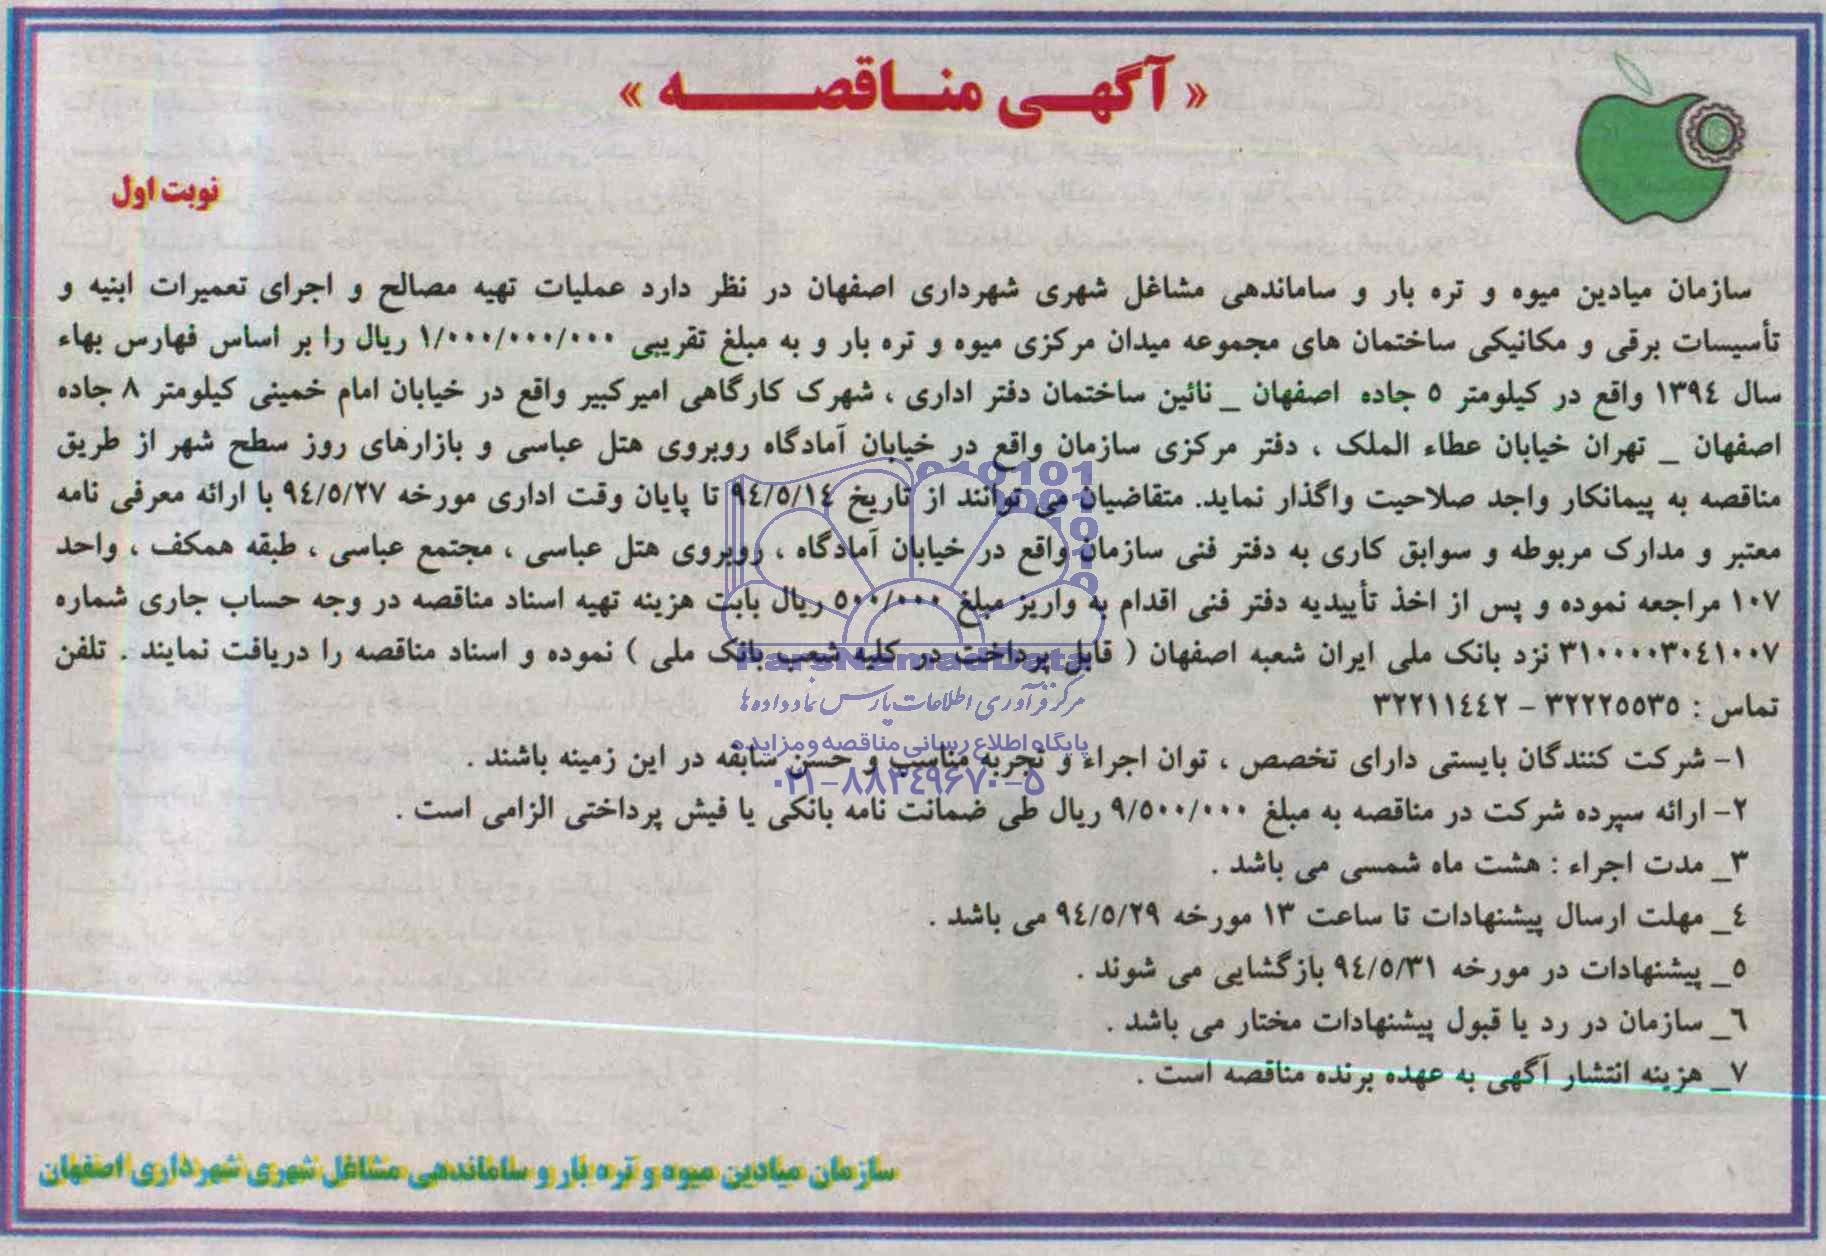 « آگهی مناقصه »
نوبت اول
سازمان میادین میوه و تره بار و ساماندهی مشاغل شهری شهرداری اصفهان در نظر دارد عملیات تهیه مصالح و اجرای تعمیرات ابنیه و
تأسیسات برقی و مکانیکی ساختمان های مجموعه میدان مرکزی میوه و تره بار و به مبلغ تقریبی ۱/۰۰۰/۰۰۰/۰۰۰ ریال را بر اساس فهارس بهاء
سال ۱۳۹٤ واقع در کیلومتر ۵ جاده اصفهان _ نائین ساختمان دفتر اداری ، شهرک کارگاهی امیرکبیر واقع در خیابان امام خمینی کیلومتر ۸ جاده
اصفهان _ تهران خیابان عطاء الملک ، دفتر مرکزی سازمان واقع در خیابان آمادگاه روبروی هتل عباسی و بازارهای روز سطح شهر از طریق
مناقصه به پیمانکار واجد صلاحیت واگذار نماید. متقاضیان می توانند از تاریخ ۹٤/۵/۱٤ تا پایان وقت اداری مورخه ۹٤/۵/۲۷ با ارائه معرفی نامه
معتبر و مدارک مربوطه و سوابق کاری به دفتر فنی سازمان واقع در خیابان آمادگاه ، روبروی هتل عباسی ، مجتمع عباسی ، طبقه همکف ، واحد
۱۰۷ مراجعه نموده و پس از اخذ تأییدیه دفتر فنی اقدام به واریز مبلغ ۵۰۰/۰۰۰ ریال بابت هزینه تهیه اسناد مناقصه در وجه حساب جاری شماره
۳۱۰۰۰۰۳۰٤۱۰۰۷ نزد بانک ملی ایران شعبه اصفهان ( قابل پرداخت در کلیه شعب بانک ملی ) نموده و اسناد مناقصه را دریافت نمایند . تلفن
تماس : ۳۲۲۲۵۵۳۵ - ۳۲۲۱۱٤٤۲
۱- شرکت کنندگان بایستی دارای تخصص ، توان اجراء و تجربه مناسب و حسن سابقه در این زمینه باشند .
۲- ارائه سپرده شرکت در مناقصه به مبلغ ۹/۵۰۰/۰۰۰ ریال طی ضمانت نامه بانکی یا فیش پرداختی الزامی است .
۳_ مدت اجراء : هشت ماه شمسی می باشد .
٤_ مهلت ارسال پیشنهادات تا ساعت ۱۳ مورخه ۹٤/۵/۲۹ می باشد .
۵_ پیشنهادات در مورخه ۹٤/۵/۳۱ بازگشایی می شوند .
٦_ سازمان در رد یا قبول پیشنهادات مختار می باشد .
۷_ هزینه انتشار آگهی به عهده برنده مناقصه است .
سازمان میادین میوه و تره بار و ساماندهی مشاغل شهری شهرداری اصفهان
ParsNamadData
مرکز فرآوری اطلاعات پارس نماد داده ها
پایگاه اطلاع رسانی مناقصه و مزایده
۰۲۱-۸۸۳٤۹۶۷۰-۵